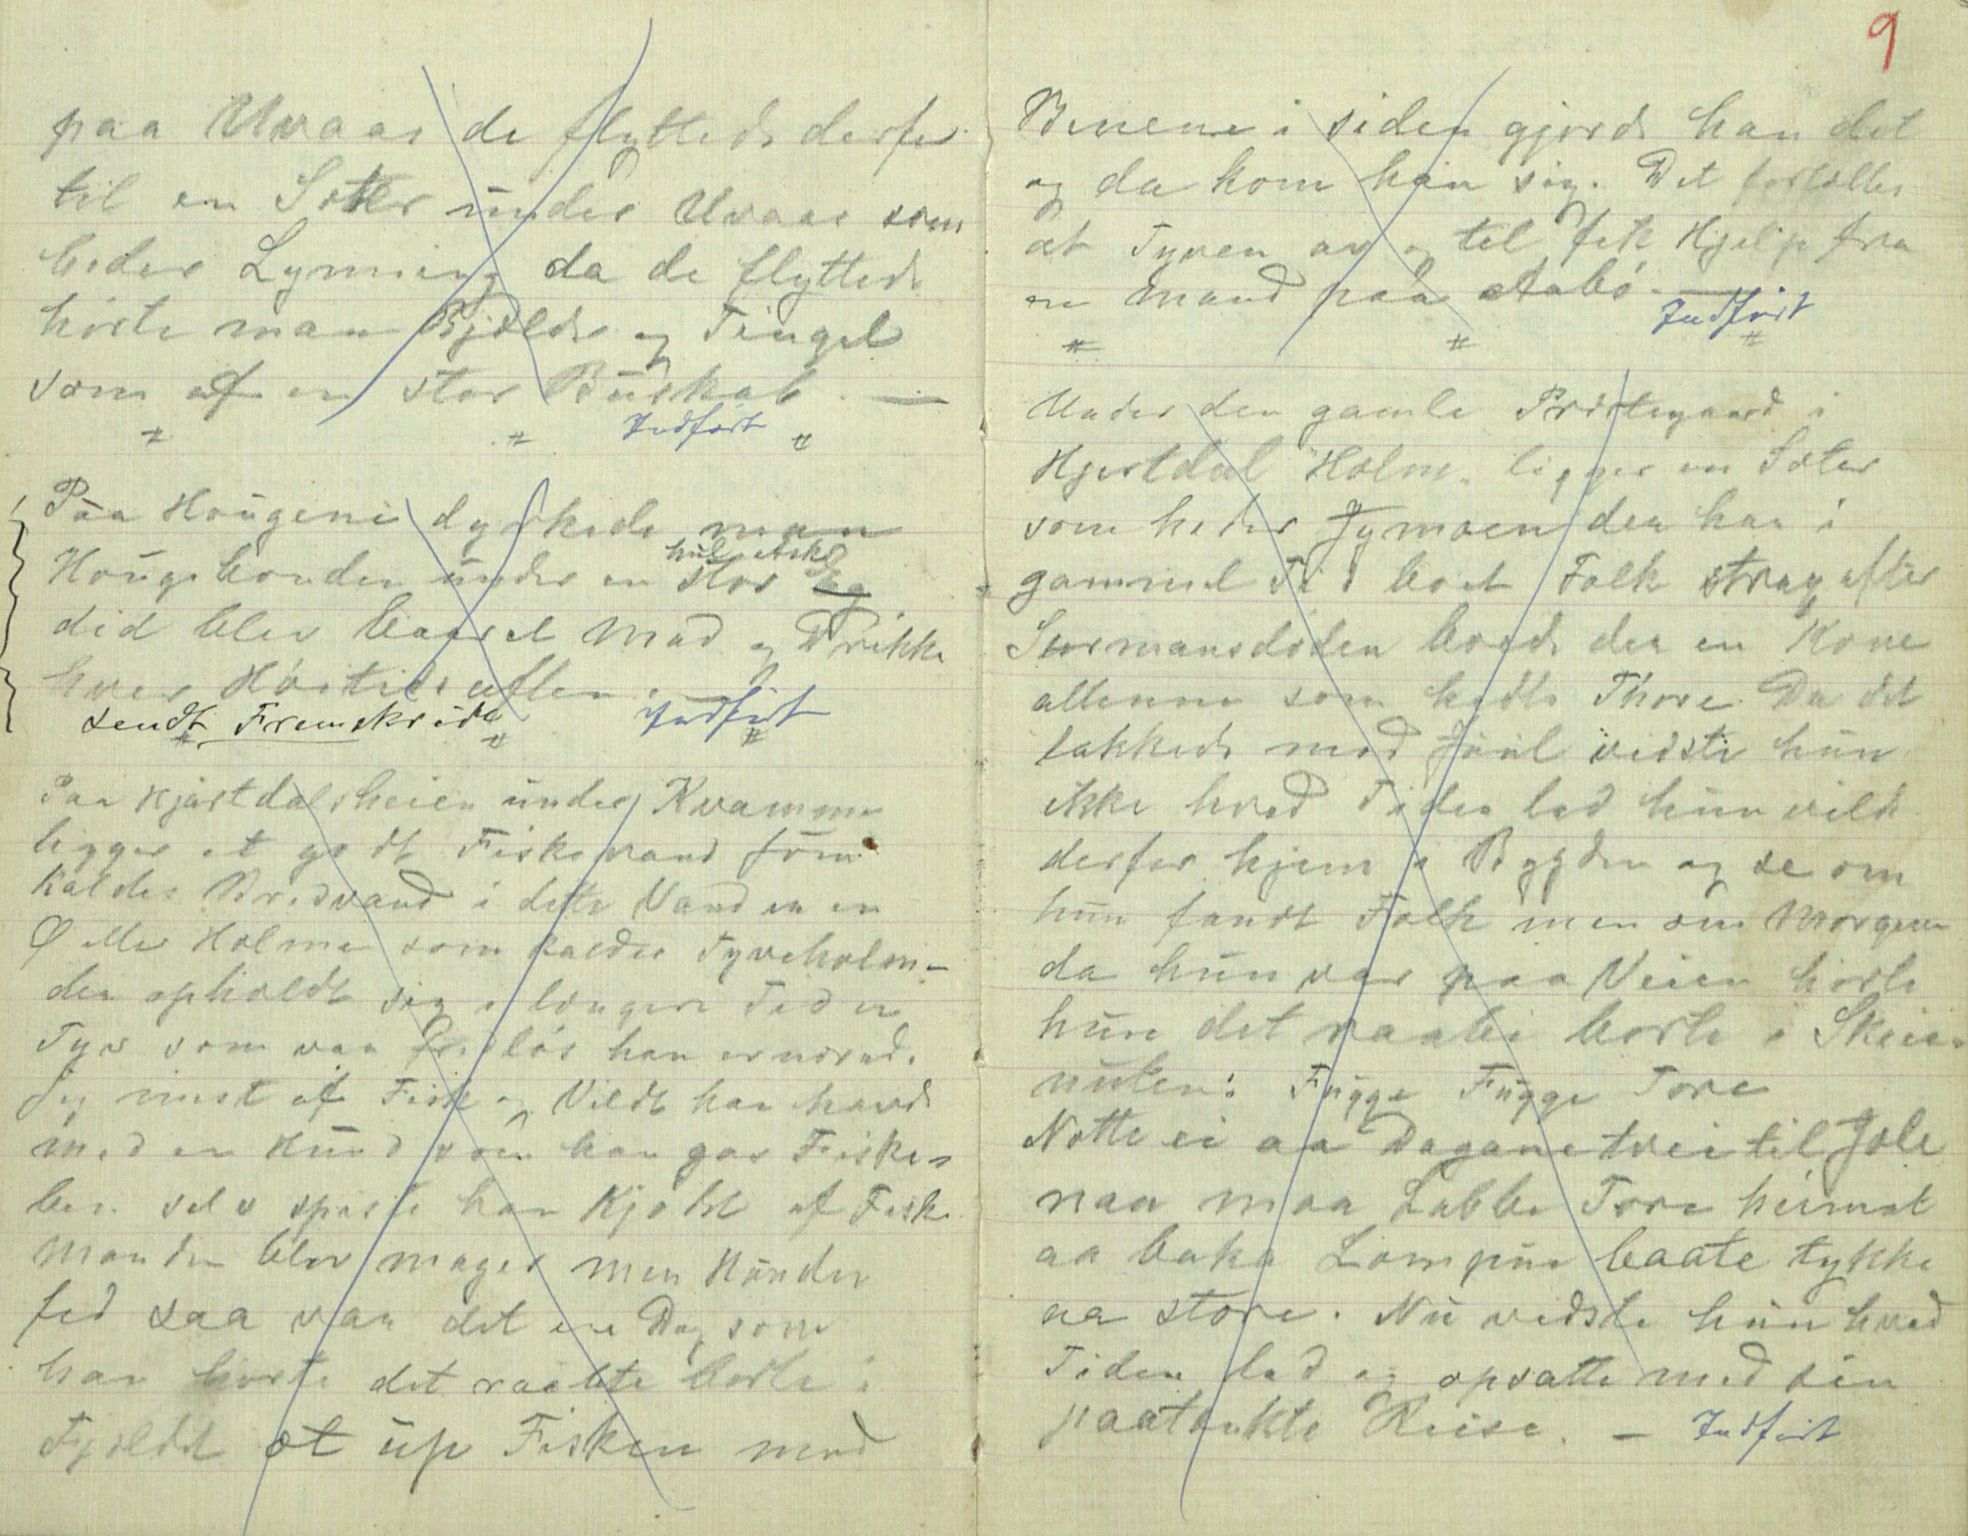 paa Uvaas de flyttede derfor
til en Sæter under Uvaas som
heder Lynning da de flyttede
hørte man Bjælder og Tingel
som af en stor Buskab. —
Indført
Paa Haugene dyrkede man
Haugebonden under en stor Eg
hul Ask
did blev baaret Mad og Drikke
hver Høitids aften. —
sendt Fremskridt
Indført
Paa Kjøstdalsheien under Kvamme
ligger et godt Fiskevand som
kaldes Bredvand i dette Vand er en
Ø eller Holme som kaldes Tyveholm-
der opholdt sig i længere Tid en
Tyv som var fredløs han ernærede
sig mest af Fisk og Vildt han havde
med en Hund som han gav Fiske-
ben selv spiste han Kjødet af Fisk
Manden blev mager men Hunden
fed saa var det en Dag som
han hørte det raabte borte i
Fjeldet æt up Fisken med
9
Benene i siden gjorde han det
og da kom han sig. Det fortælles
at Tyven av og til fik Hjelp fra
en Mand paa Aabø. —
Indført
Under den gamle Prestegaard i
Hjertdal Holm. ligger en Sæter
som heder Gymoen der har i
gammel Tid boet Folk strax efter
Stormansdøden boede der en Kone
allenne som hedte Thore. Da det
lakkede mod Juul vidste hun
ikke hvad Tiden led hun vilde
derfor hjem i Bygden og se om
hun fandt Folk men om Morgenen
da hun var paa Veien hørte
hun det raabe borte i Skeie-
nuten: Fugge Fugge Tore
Notte ei aa Dagane tvei til Jole
naa maa Labbe Tore heimat
aa baka Lompun baate tykke
aa store. Nu vidste hun hvad
Tiden led og opsatte med sin
paatænkte Reise. — Indført